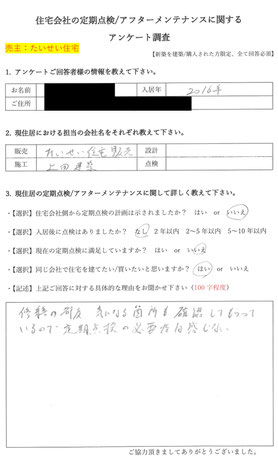 住宅会社の定期点検/アフターメンテナンスに関する
アンケート調査
売主：たいせい住宅
【新築を建築/購入された方限定、全て回答必須】
1. アンケートご回答者様の情報を教えて下さい。
お名前 入居年 2016年
ご住所
2. 現住居における担当の会社名をそれぞれ教えて下さい。
販売 たいせい住宅販売 設計
施工 上田建築 点検
3. 現住居の定期点検/アフターメンテナンスに関して詳しく教えて下さい。
・【選択】住宅会社側から定期点検の計画は示されましたか？ はい or いいえ
・【選択】入居後に点検はありましたか？ なし 2年以内 2～5年以内 5～10年以内
・【選択】現在の定期点検に満足していますか？ はい or いいえ
・【選択】同じ会社で住宅を建てたい/買いたいと思いますか？ はい or いいえ
・【記述】上記ご回答に対する具体的な理由をお聞かせ下さい（100字程度）
修繕の都度 気になる箇所を確認してもらって
いるので定期点検の必要性は感じない
ご協力頂きましてありがとうございました。